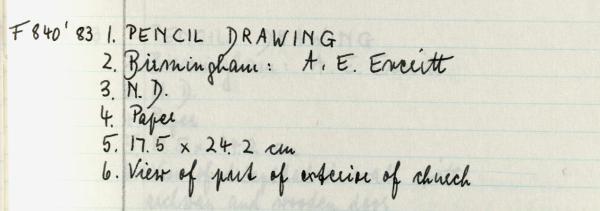 F840'83 1. PENCIL DRAWING
2. Birmingham: A. E. Everitt
3. N.D.
4. Paper
5. 17.5 x 24.2 cm
6. View of part of exterior of church